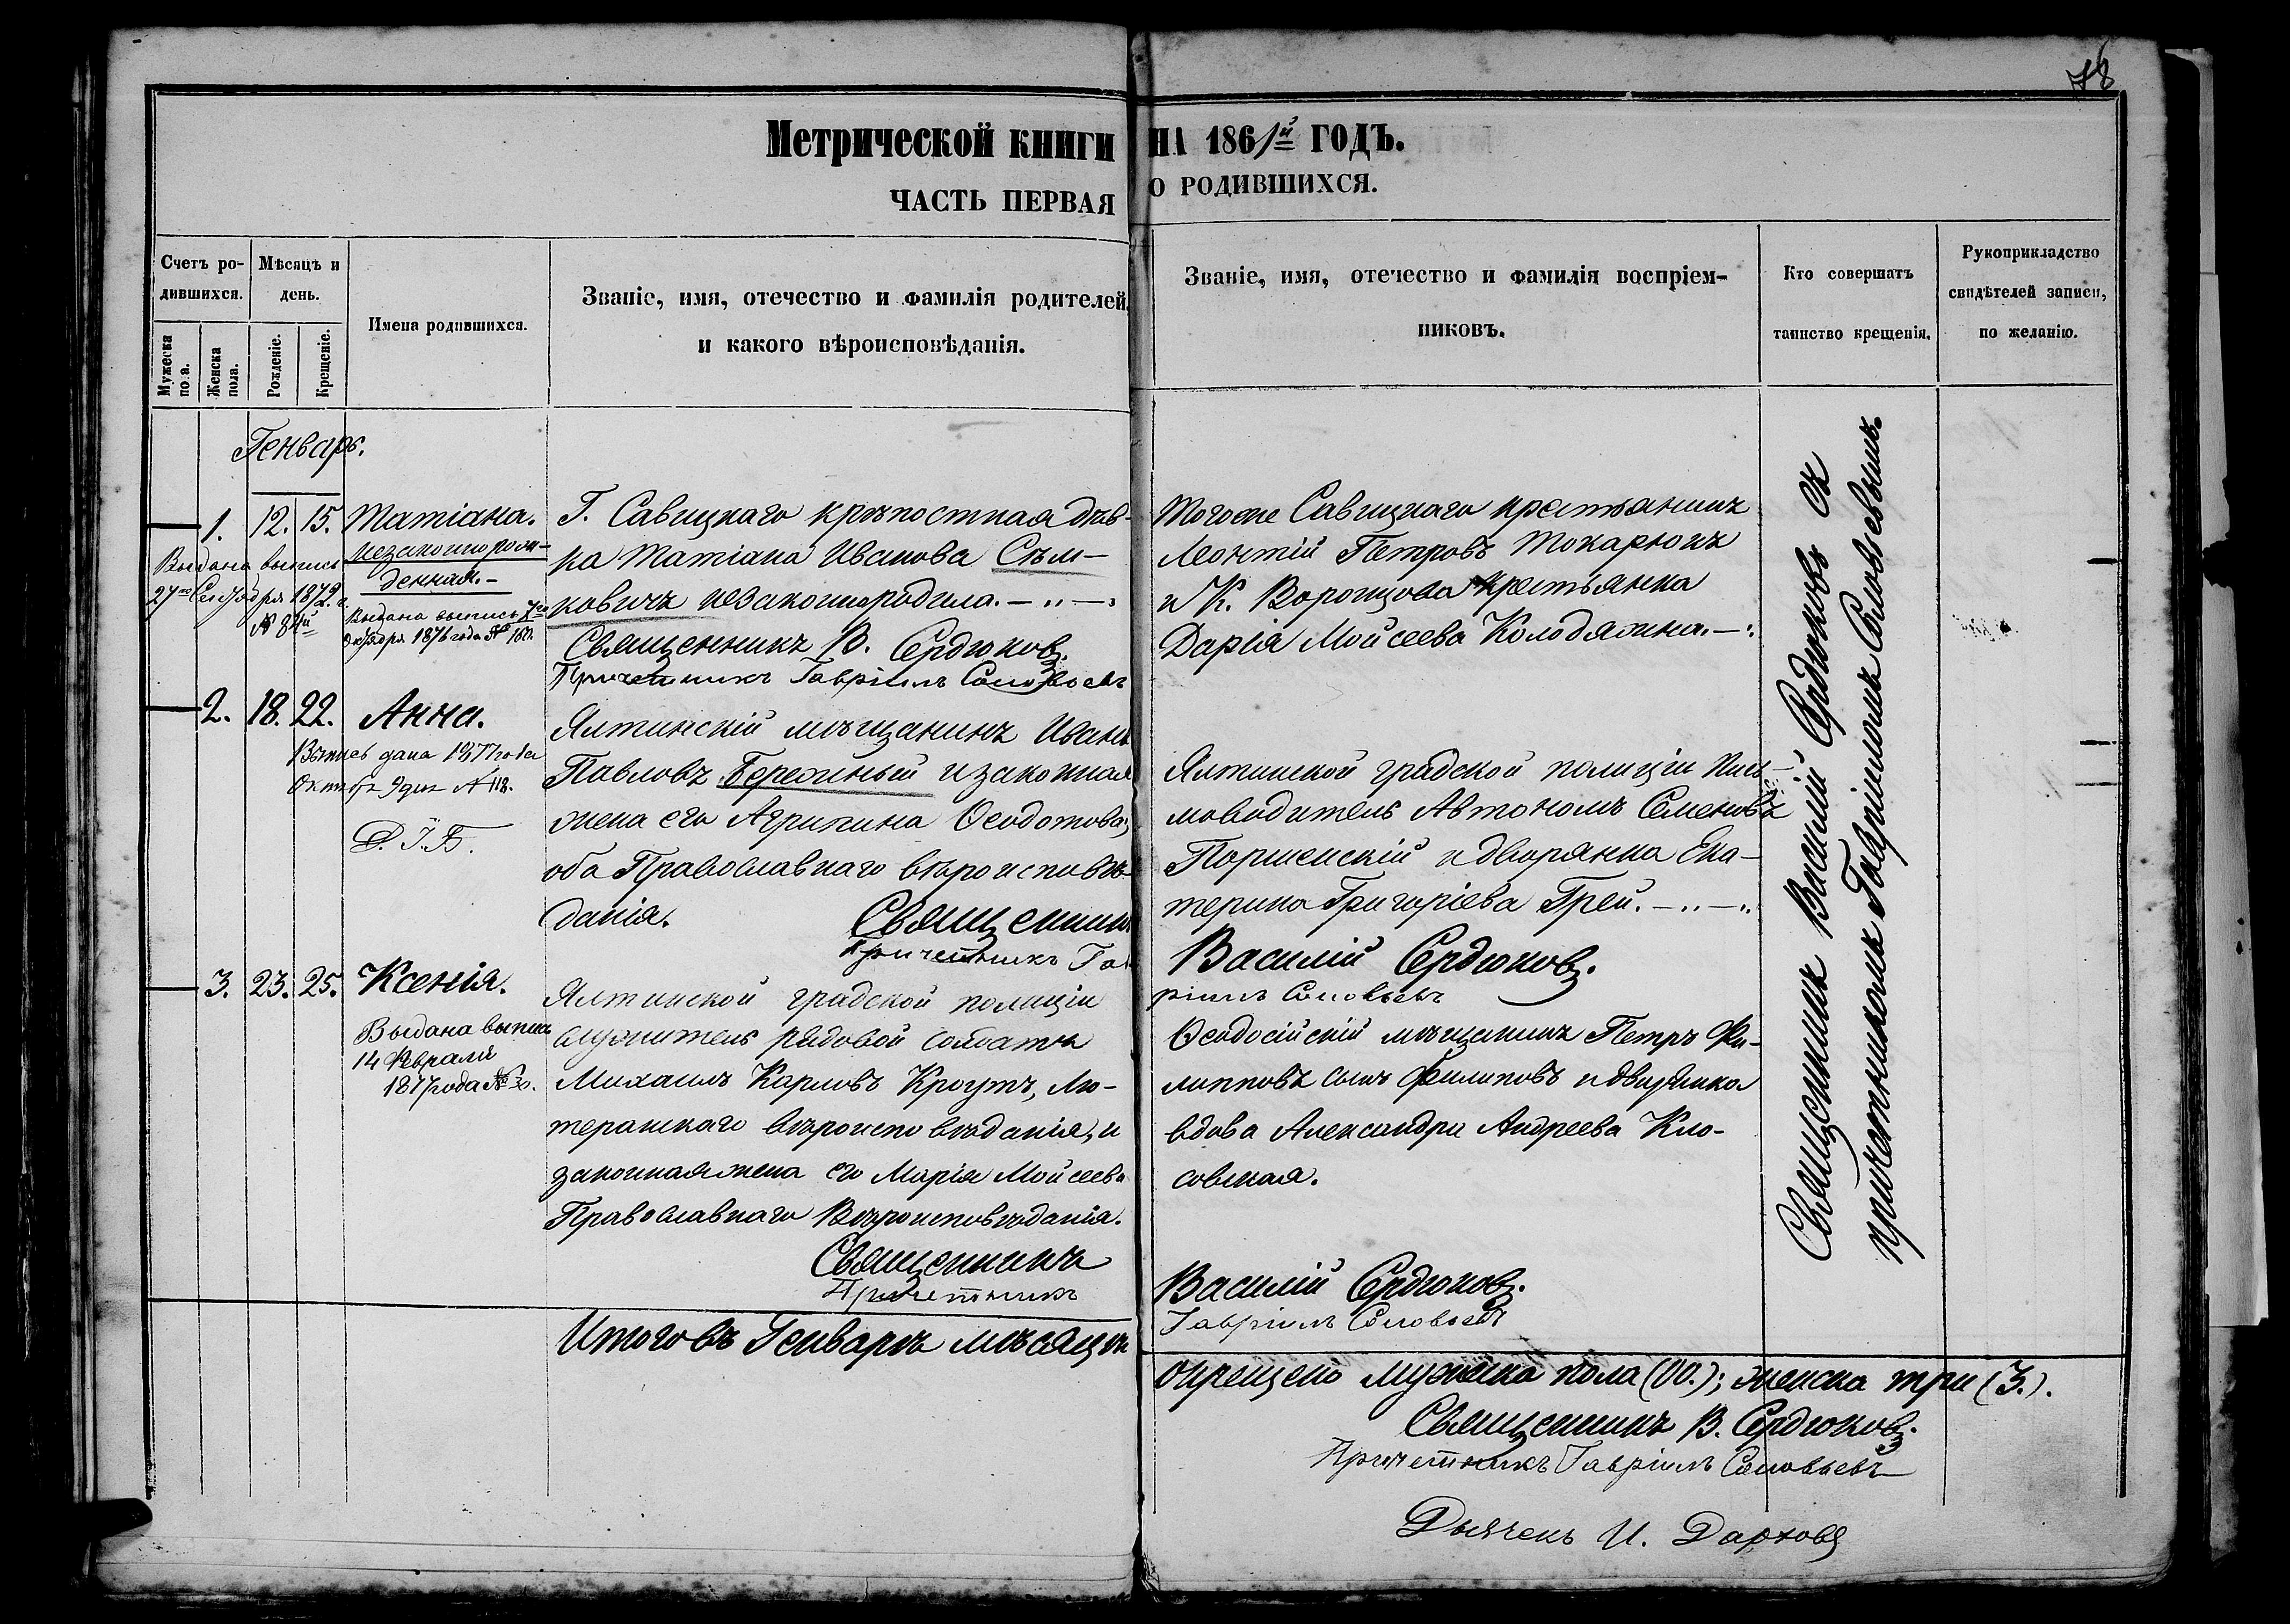 78
Метрической книги на 1861й годъ.
ЧАСТЬ ПЕРВАЯ О РОДИВШИХСЯ.
Счетъ родившихся.
Мужеска пола.
Женска пола.
Мѣсяцъ и день.
Рожденіе.
Крещеніе.
Имена родившихся.
Званіе, имя, отечество и фамилія родителей,
и какого вѣроисповѣданія.
Званіе, имя, отечество и фамилія воспріем-
никовъ.
Кто совершатъ
таинство крещенія.
Рукоприкладство
свидѣтелей записи,
по желанію.
Генварь.
1. 12. 15. Татіана.
незаконнорож-
денная.-
Выдана выпись
27го Сентября 1872 г.
№ 84й
Выдана выпись 7го
Октября 1876 года № 160.
Г. Савицкаго крѣпостная дѣв-
ка Татіана Иванова Сѣм-
ковичъ незаконнородила.
Священникъ В. Сердюковъ.
Причетникъ Гавріилъ Соловьевъ
Тогоже Савицкаго крестьянинъ
Леонтій Петровъ Токарюкъ
и К. Воронцова крестьянка
Дарія Мойсеева Колодяжна.
2. 18. 22. Анна.
Выпись дана 1877 года
Октяб. 9 дня № 118.
Ялтинскій мѣщанинъ Иванъ
Павловъ Бережный и законная
жена его Агрипина Ѳеодотова,
оба Православнаго вѣроисповѣ-
данія.
Священникъ
Причетникъ Гав
Ялтинской градской полиціи Пись-
моводитель Автономъ Семеновъ
Поршенскій и дворянка Ека-
терина Григоріева Грей.
Василій Сердюковъ.
ріилъ Соловьевъ
3. 23. 25. Ксенія.
Выдана выпись
14 Февраля
1877 года № 30.
Ялтинской градской полиціи
служитель рядовой солдатъ
Михаилъ Карловъ Кроутъ, Лю-
теранскаго вѣроисповѣданія, и
законная жена его Марія Мойсеева
Православнаго Вѣроисповѣданія.
Священникъ
Причетникъ
Ѳеодосійскій мѣщанинъ Петръ Фи-
липповъ сынъ Филиповъ и дворянка
вдова Александра Андреева Кло-
совская.
Василій Сердюковъ.
Гавріилъ Соловьевъ
Священникъ Василій Сердюковъ съ
причетникомъ Гавріиломъ Соловьевымъ.
Итого въ Генварѣ мѣсяцѣ
окрещено мужеска пола (00.); женска три (3.).
Священникъ В. Сердюковъ.
Причетникъ Гавріилъ Соловьевъ
Дьячекъ И. Дарховъ